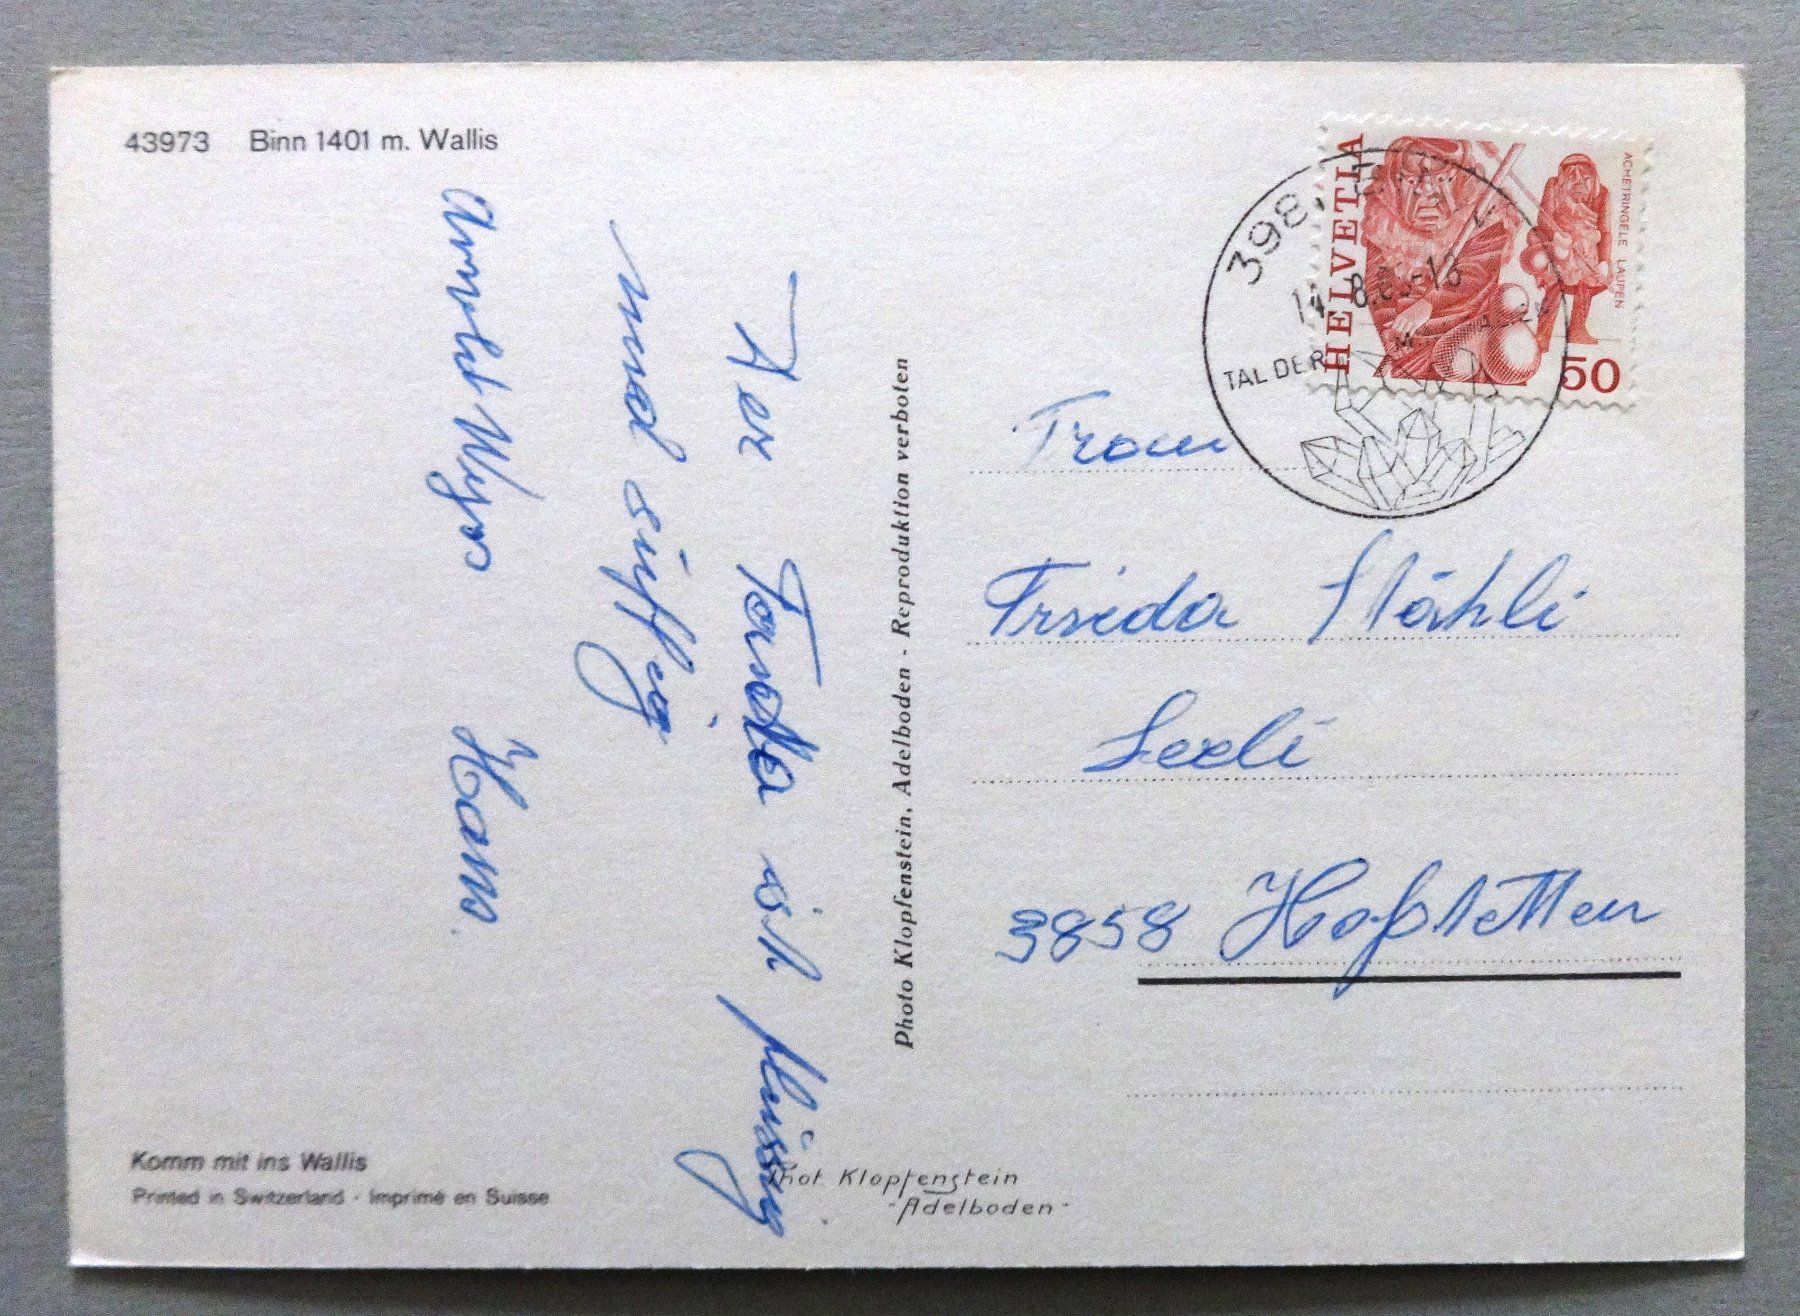 43973 Binn 1401 m. Wallis
Der Fendant ist flüssig
und süffig
Hans
Photo Klopfenstein, Adelboden - Reproduktion verboten
HELVETIA
ACHETRINGELE LAUPEN
50
398
14. 8.8 -18
TAL DER
Frau
Frieda Stähli
Seeli
3858 Hofstetten
Komm mit ins Wallis
Printed in Switzerland · Imprimé en Suisse
Phot. Klopfenstein
-Adelboden-